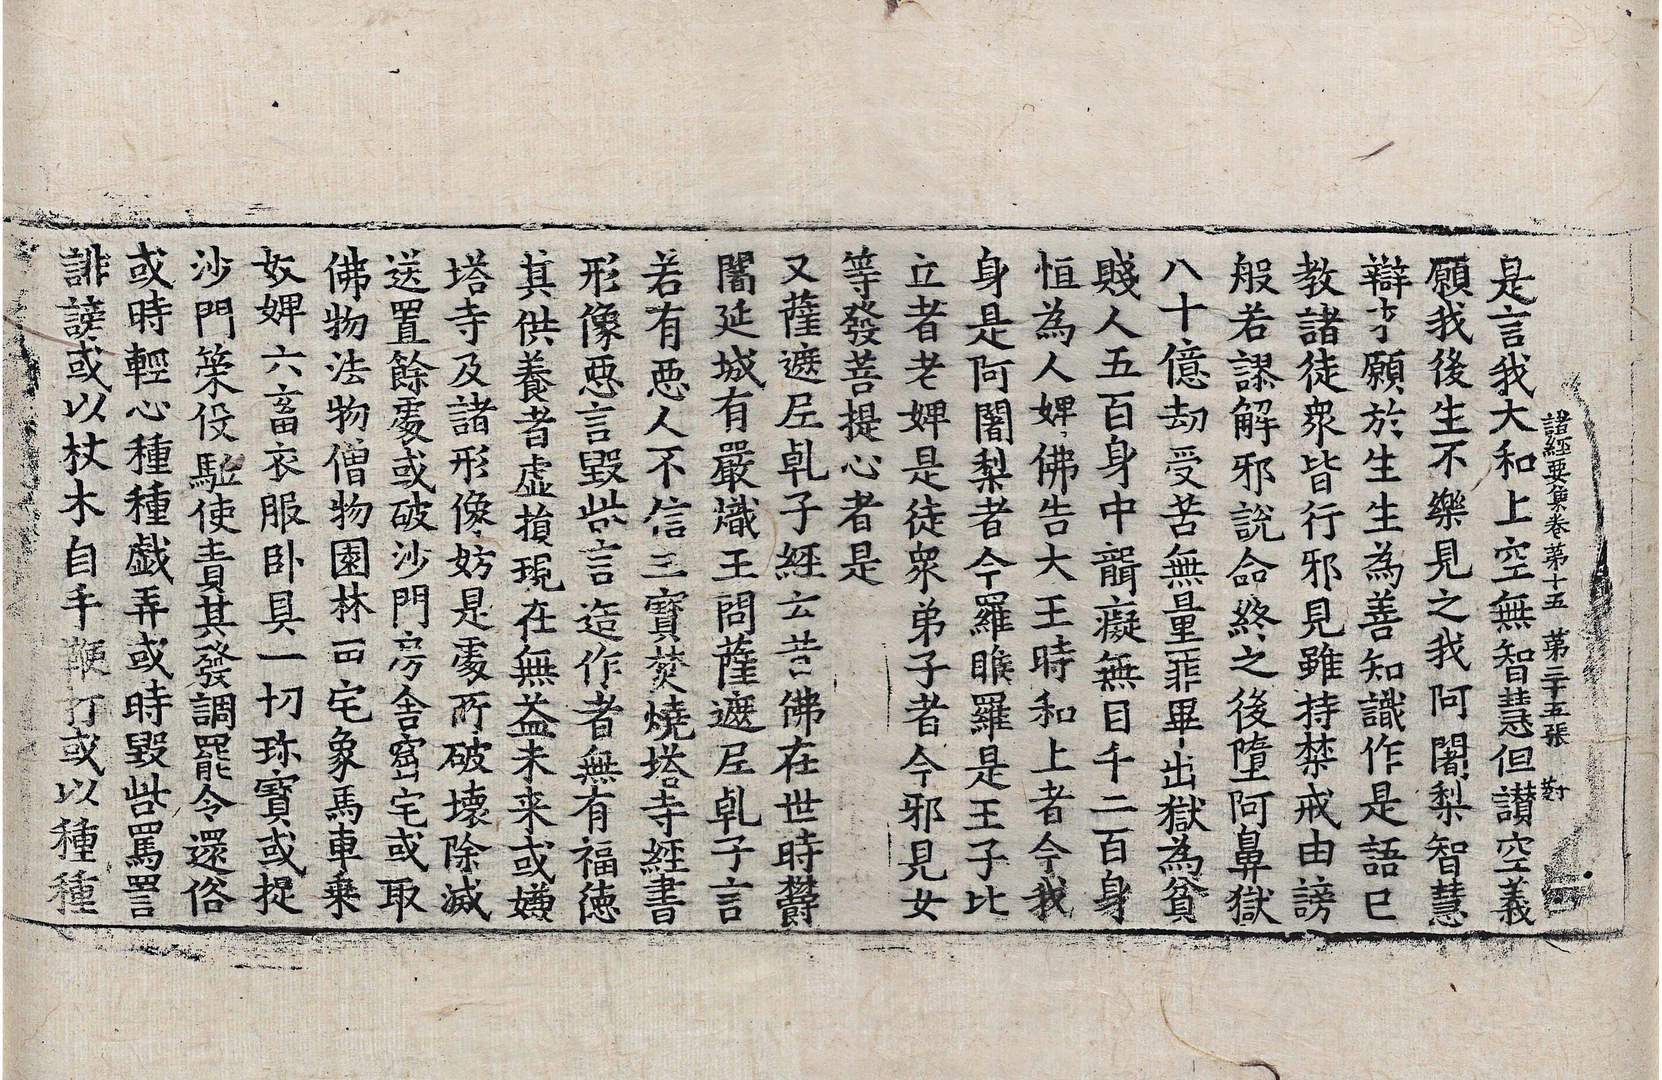 諸經要集卷第十五　第三十五張　對
是言我大和上空無智慧但讃空義
願我後生不樂見之我阿闍梨智慧
辯才願於生生為善知識作是語已
教諸徒衆皆行邪見雖持禁戒由謗
般若謬解邪說命終之後墮阿鼻獄
八十億劫受苦無量罪畢出獄為貧
賤人五百身中聾癡無目千二百身
恒為人婢佛告大王時和上者今我
身是阿闍梨者今羅睺羅是王子比
立者老婢是徒衆弟子者今邪見女
等發菩提心者是
又薩遮尼乹子經云昔佛在世時欝
闍延城有嚴熾王問薩遮尼乹子言
若有惡人不信三寶焚燒塔寺經書
形像惡言毀呰言造作者無有福德
其供養者虛損現在無益未来或嫌
塔寺及諸形像妨是處所破壞除滅
送置餘處或破沙門房舍窟宅或取
佛物法物僧物園林田宅象馬車乗
奴婢六畜衣服卧具一切珎寶或捉
沙門策役駈使責其發調罷令還俗
或時輕心種種戯弄或時毀呰罵詈
誹謗或以杖木自手鞭打或以種種